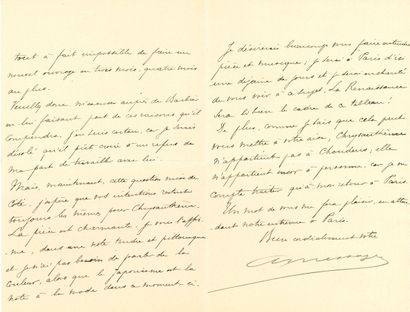 tout à fait impossible de faire un
nouvel ouvrage en trois mois, quatre mois
au plus.
Veuillez donc m'excuser auprès de Barbier
en lui faisant part de ces raisons qu'il
comprendra, j'en suis certain, car je serais
désolé qu'il pût croire à un refus de
ma part de travailler avec lui.
Mais, maintenant, cette question mise de
côté, j'espère que vos intentions restent
toujours les mêmes pour Chrysanthème.
La pièce est charmante, je vous l'affir-
me, dans une note tendre et pittoresque
et je n'ai pas besoin de parler de la
couleur, alors que le Japonisme est la
note à la mode dans ce moment ci.
Je désirerais beaucoup vous faire entendre
pièce et musique ; je serai à Paris d'ici
une dizaine de jours et je serai enchanté
de vous voir à ce sujet. La Renaissance
sera si bien le cadre de ce tableau !
De plus, comme je sais que cela peut
vous mettre à votre aise, Chrysanthème
n'appartient pas à Choudens, elle
n'appartient encor à personne, car je ne
compte traiter qu'à mon retour à Paris.
Un mot de vous me fera plaisir, en atten-
dant notre entrevue à Paris.
Bien cordialement votre
A Messager